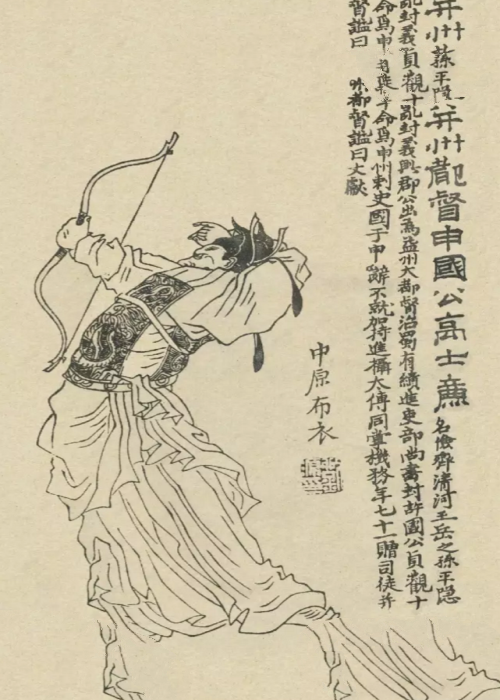 并州孫平隱并州都督申國公高士廉名儉齊清河王岳之孫平隱
亂封義貞觀十亂封義興郡公出為益州大都督治蜀有績進吏部尚書封許國公貞觀十
命爲申命爲申州刺史國于申辭不就加特進攝太傅同掌機務年七十一贈司徒并
督謚曰州都督謚曰文獻
中原布衣